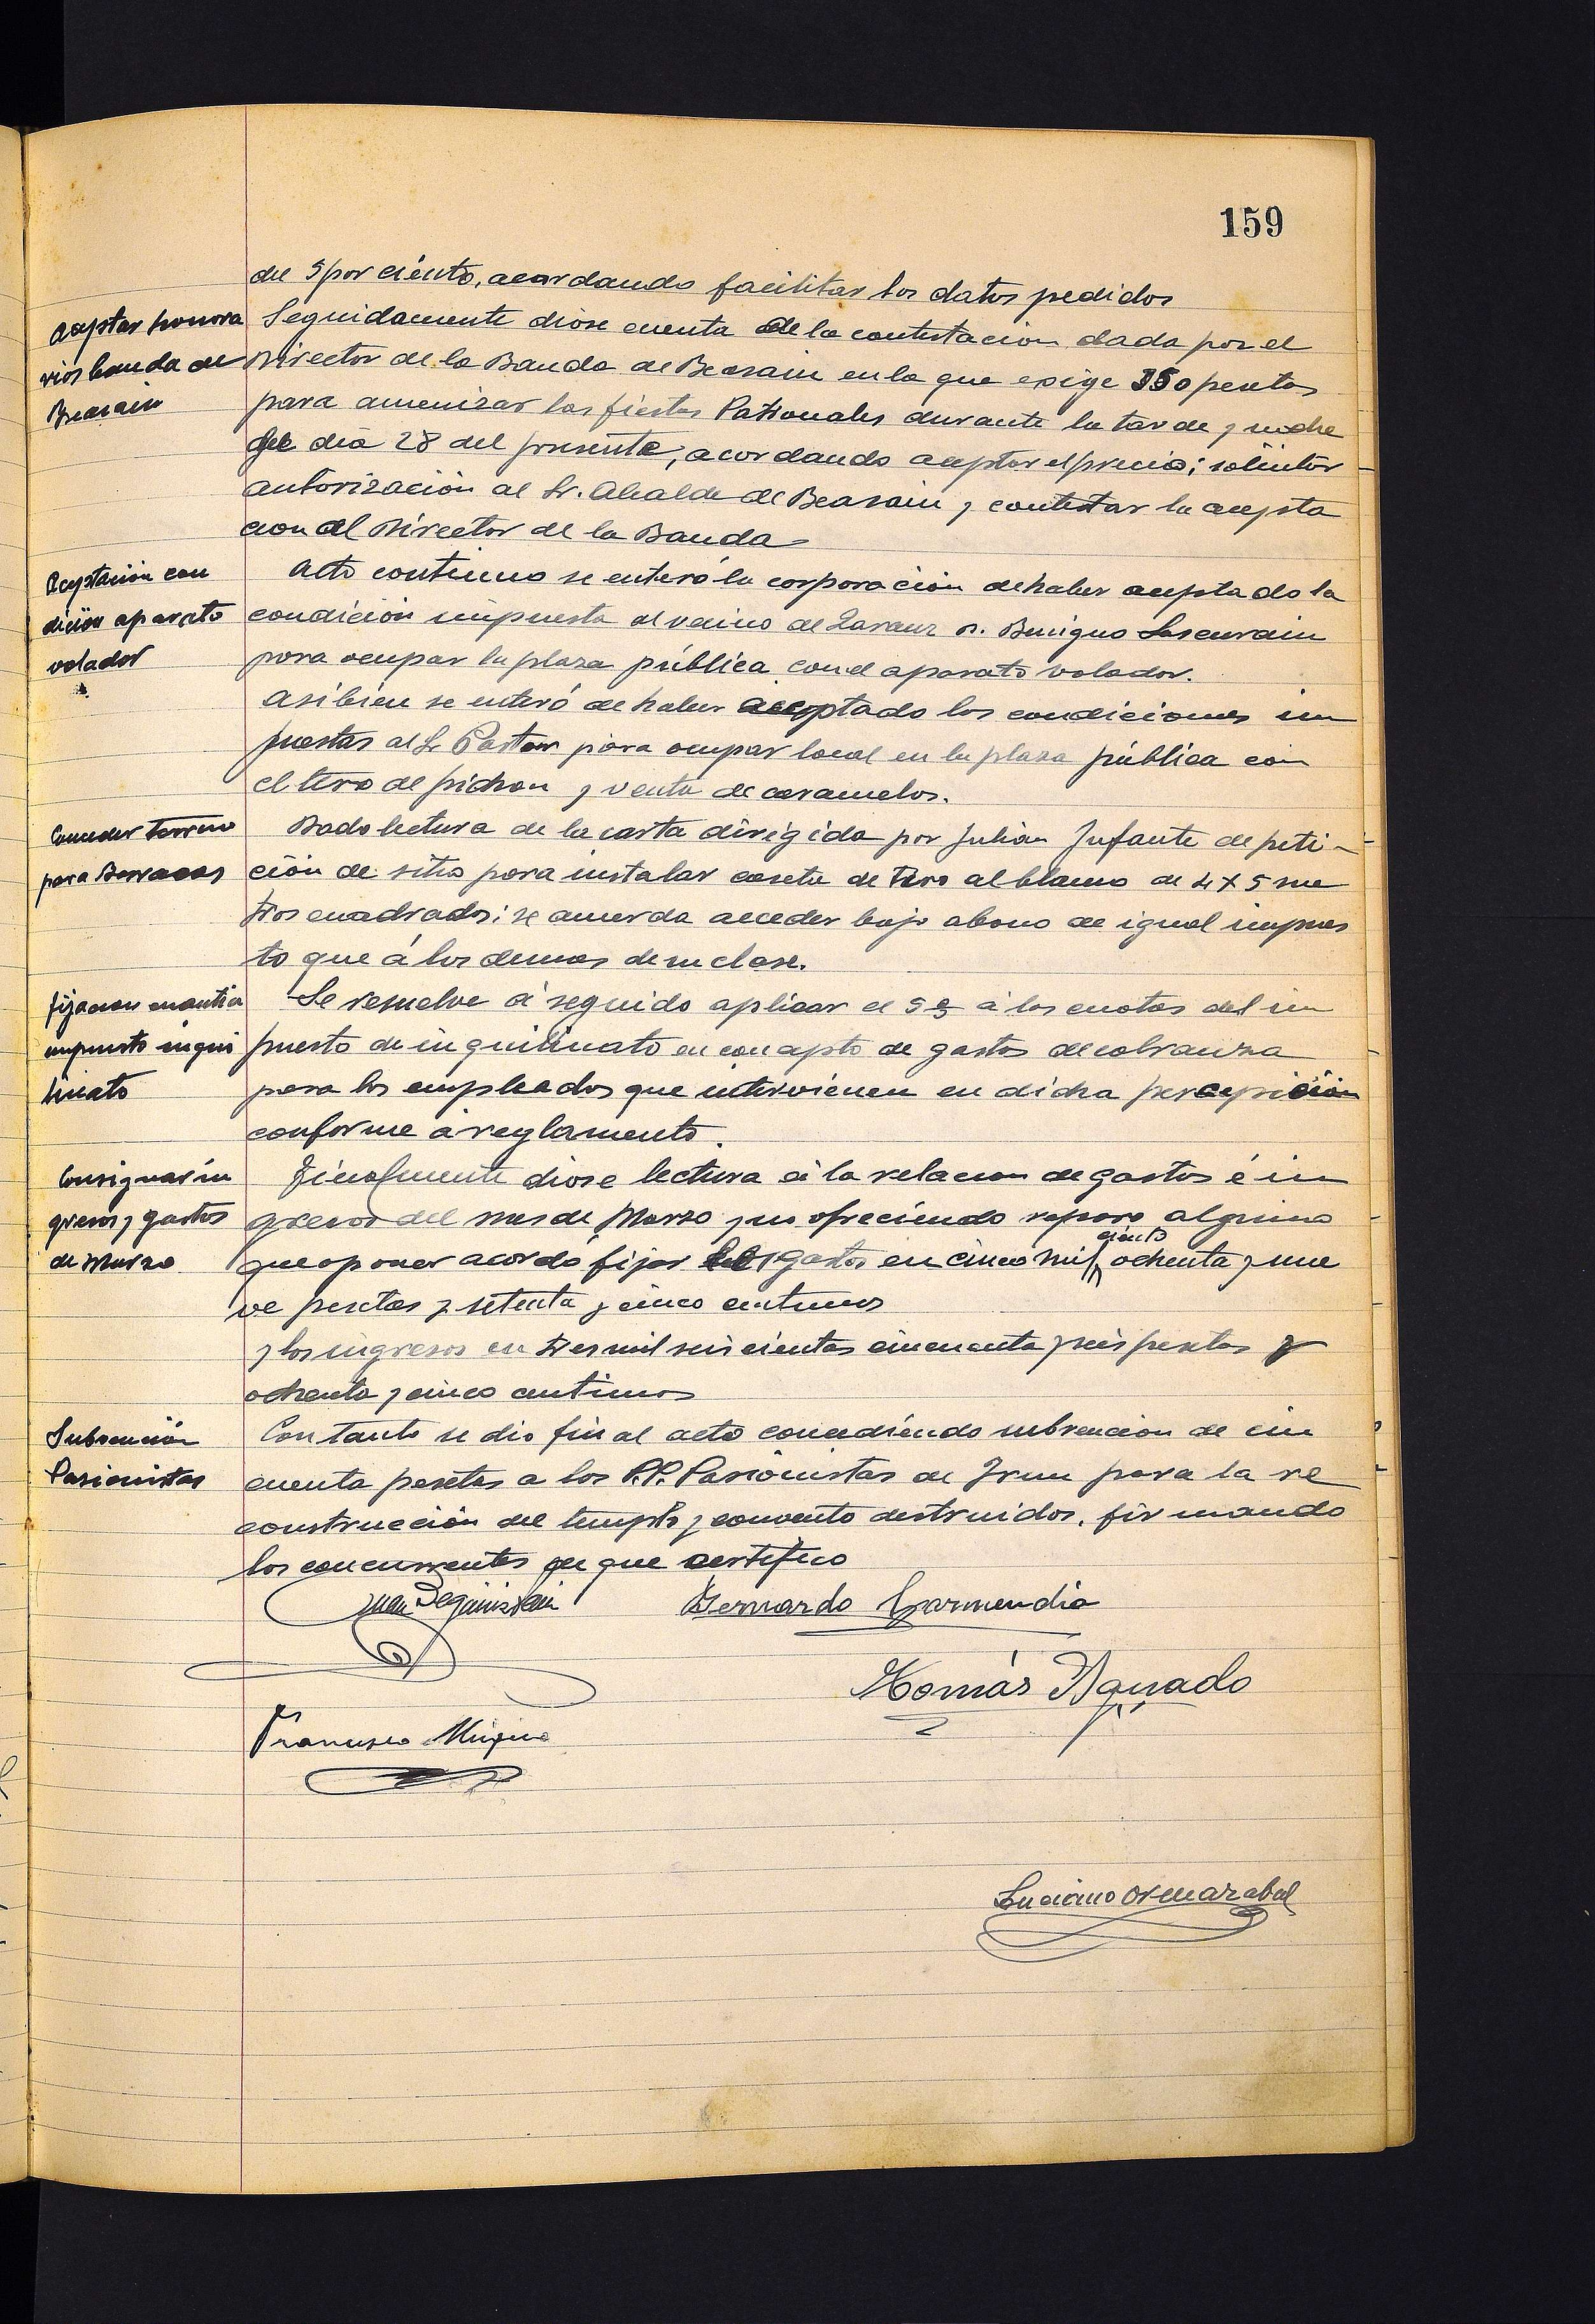 159
del 5 por ciento, acordando facilitar los datos pedidos
Aceptar honora
rios banda de
Beasain
Seguidamente diose cuenta de la contestacion dada por el
Director de la Banda de Beasain en la que exige 350 pesetas
para amenizar las fiestas Patronales durante la tarde y noche
del dia 28 del presente, acordando aceptar el precio; solicitar
autorización al Sr. Alcalde de Beasain y contestar la acepta
cion al Director de la Banda
Aceptación con
dición aparato
volador
Acto continuo se enteró la corporación de haber aceptado la
condición impuesta al vecino de Zarauz D. Benigno Lascurain
para ocupar la plaza pública con el aparato volador.
Asibien se enteró de haber aceptado los condiciones im
puestas al Sr Pastor para ocupar local en la plaza pública con
el tiro de pichon y venta de caramelos.
Conceder terreno
para Barracas
Dado lectura de la carta dirigida por Julian Infante de peti-
ción de sitio para instalar caseta de tiro al blanco de 4 x 5 me
tros cuadrados; se acuerda acceder bajo abono de igual impues
to que á los demas de su clase.
fijacion cuantia
impuesto inqui
linato
Se resuelve á seguido aplicar el 5 % á las cuotas del im
puesto de inquilinato en concepto de gastos de cobranza
para los empleados que intervienen en dicha percepción
conforme á reglamento.
Consignar in
gresos y gastos
de Marzo
Finalmente diose lectura á la relacion de gastos é in
gresos del mes de Marzo y no ofreciendo reparo alguno
que oponer acordó fijar los gastos en cinco mil ciento ochenta y nue
ve pesetas y setenta y cinco centimos
y los ingresos en tres mil seis cientas cincuenta y seis pesetas y
ochenta y cinco centimos
Subvención
Pasionistas
Con tanto se dio fin al acto concediendo subvencion de cin
cuenta pesetas a los P.P. Pasionistas de Irun para la re
construcción del templo y convento destruidos, firmando
los concurrentes de que certifico
Juan Beguiristain
Bernardo Garmendia
Tomás Aguado
Francisco Mugica
Luciano Ormazabal